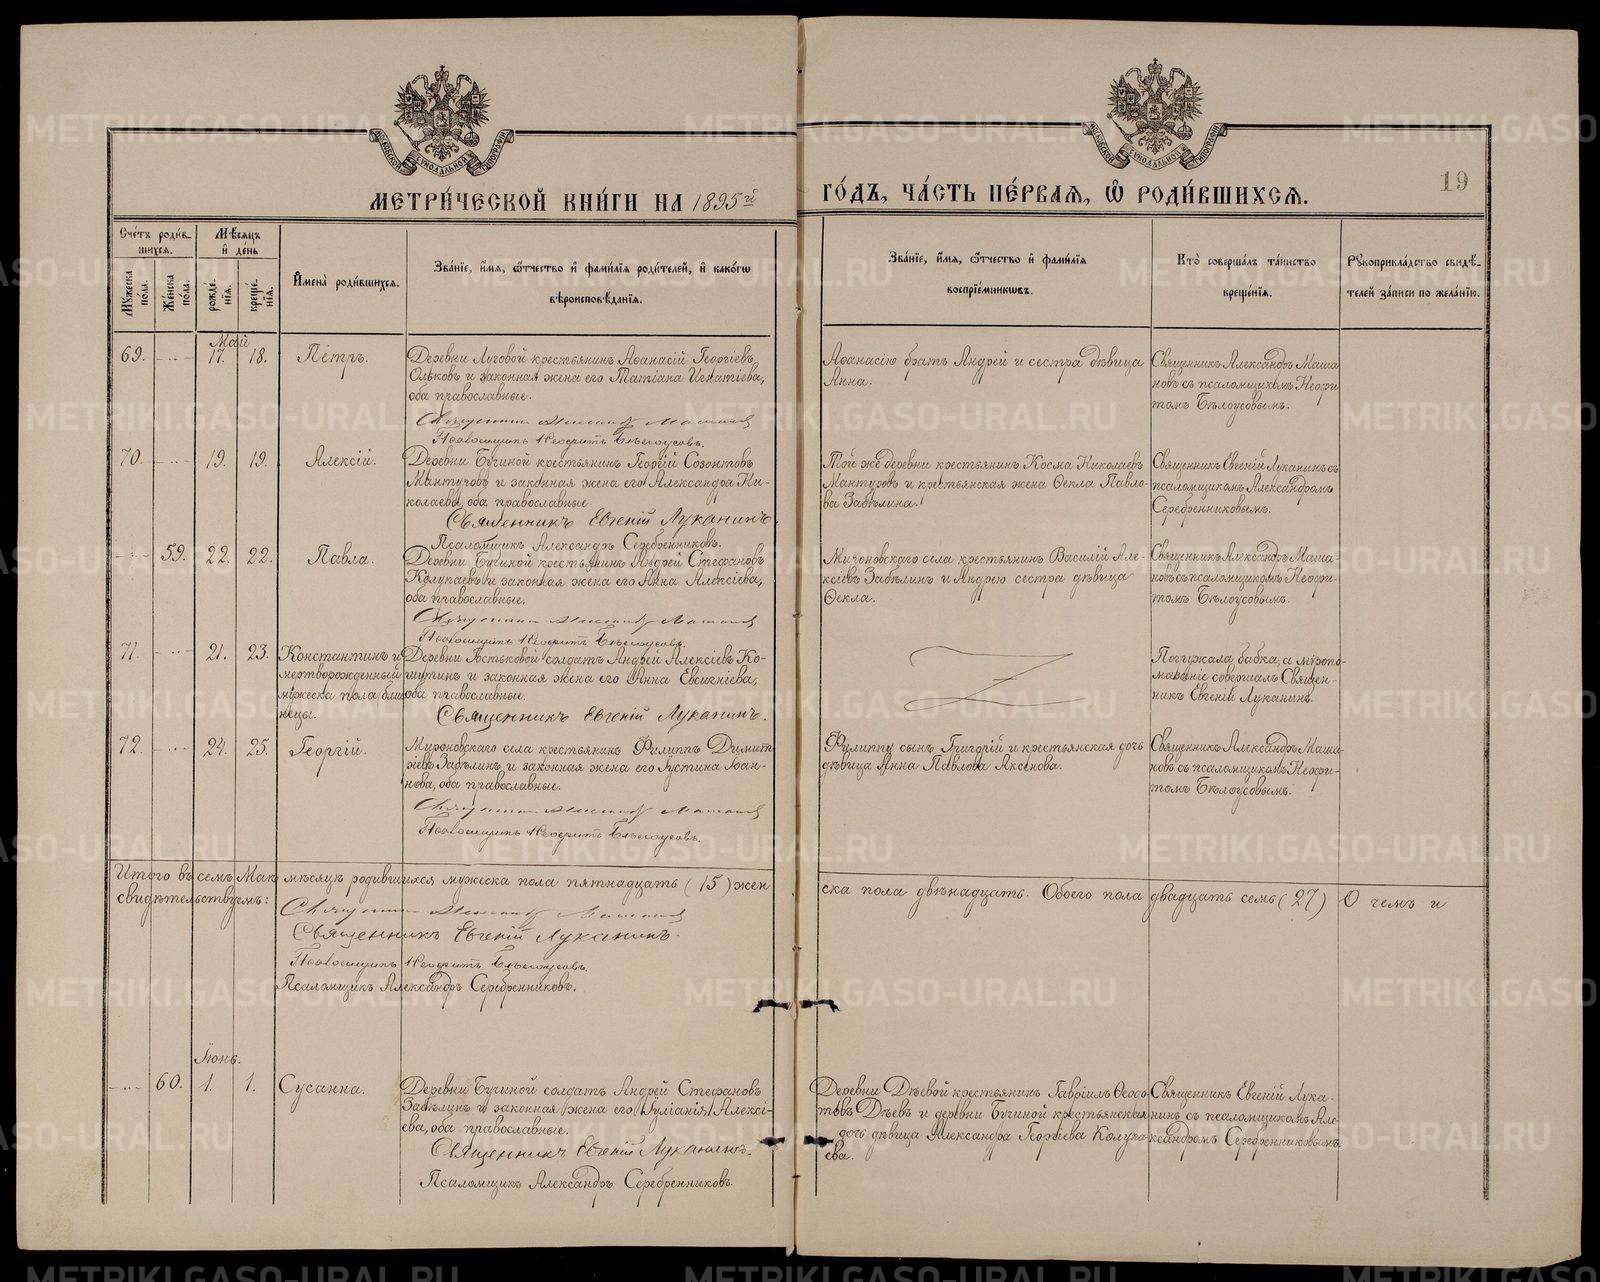 МОСКОВСКОЙ СѴНОДАЛЬНОЙ ТИПОГРАФІИ
МОСКОВСКОЙ СѴНОДАЛЬНОЙ ТИПОГРАФІИ
МЕТРИ́ЧЕСКОЙ КНИ́ГИ НА 1895й
ГО́ДЪ, ЧА́СТЬ ПЕ́РВАѦ, Ѡ РОДИ́ВШИХСѦ.
19
Сче́тъ роди́в-
шихся.
Мѣ́сяцъ
и де́нь
Мꙋ́жеска
пола.
Же́нска
пола.
рожде́-
нїя.
креще́-
нїя.
И҆мена̀ роди́вшихся.
Зва́нїе, и҆́мя, ѻ҆́тчество и҆ фами́лїя роди́телей, и҆ како́гѡ
вѣроисповѣ́данїя.
Зва́нїе, и҆́мя, ѻ҆́тчество и҆ фами́лїя
воспрїе́мникѡвъ.
Кто̀ соверша́лъ та́инство
креще́нїя.
Рꙋкоприкла́дство свидѣ́-
телей за́писи по жела́нїю.
Май
69. -..- 17. 18. Петръ.
Деревни Луговой крестьянинъ Аѳанасій Георгіевъ
Ольковъ и законная жена его Татіана Игнатіева,
оба православные.
Священникъ Александръ Машановъ
Псаломщикъ Неофитъ Бѣлоусовъ.
Аѳанасію братъ Андрей и сестра дѣвица
Анна.
Священникъ Александръ Маша
новъ съ псаломщикомъ Неофи-
томъ Бѣлоусовымъ.
70. -..- 19. 19. Алексій.
Деревни Бучиной крестьянинъ Георгій Созонтовъ
Мантуровъ и законная жена его Александра Ни-
колаева, оба православные
Священникъ Евгеній Луканинъ.
Псаломщикъ Александръ Серебренниковъ.
Той же деревни крестьянинъ Косма Николаевъ
Мантуровъ и крестьянская жена Ѳекла Павло-
ва Забѣлина.
Священникъ Евгеній Луканинъ съ
псаломщикомъ Александромъ
Серебренниковымъ.
-..- 59. 22. 22. Павла.
Деревни Бучиной крестьянинъ Андрей Стефановъ
Колупаевъ и законная жена его Анна Алексіева,
оба православные.
Священникъ Александръ Машановъ
Псаломщикъ Неофитъ Бѣлоусовъ.
Мироновскаго села крестьянинъ Василій Але-
ксіевъ Забѣлинъ и Андрею сестра дѣвица
Ѳекла.
Священникъ Александръ Маша-
новъ съ псаломщикомъ Неофи-
томъ Бѣлоусовымъ.
71. -..- 21. 23. Константинъ и
мертворожденный
мужеска пола близ
нецы.
Деревни солдатъ Андрей Алексіевъ Ко-
и законная жена его Анна Евсигніева,
оба православные.
Священникъ Евгеній Луканинъ.
Погружала бабка, а мѵропо-
мазаніе совершалъ Священ-
никъ Евгеній Луканинъ.
72. -..- 24. 25. Георгій.
Мироновскаго села крестьянинъ Филиппъ Димит
ріевъ Забѣлинъ и законная жена его Іустина Іоан-
нова, оба православные.
Священникъ Александръ Машановъ
Псаломщикъ Неофитъ Бѣлоусовъ.
Филиппу сынъ Григорій и крестьянская дочь
дѣвица Анна Павлова Аксенова.
Священникъ Александръ Маша-
новъ съ псаломщикомъ Неофи-
томъ Бѣлоусовымъ.
Итого въ семъ Маѣ мѣсяцѣ родившихся мужеска пола пятнадцать (15) жен
ска пола двѣнадцать. Обоего пола двадцать семь (27) О чемъ и
свидѣтельствуемъ:
Священникъ Александръ Машановъ
Священникъ Евгеній Луканинъ.
Псаломщикъ Неофитъ Бѣлоусовъ.
Псаломщикъ Александръ Серебренниковъ.
Іюнь.
-..- 60. 1. 1. Сусанна.
Деревни Бучиной солдатъ Андрей Стефановъ
Забѣлинъ и законная жена его Іуліанія Алексі-
ева, оба православные.
Священникъ Евгеній Луканинъ.
Псаломщикъ Александръ Серебренниковъ.
Деревни Дѣевой крестьянинъ Гавріилъ Ѳеодо-
товъ Дѣевъ и деревни Бучиной крестьянская
дочь дѣвица Александра Георгіева Колупа-
ева.
Священникъ Евгеній Лука-
нинъ съ псаломщикомъ Але-
ксандромъ Серебренниковымъ.
METRIKI.GASO-URAL.RU